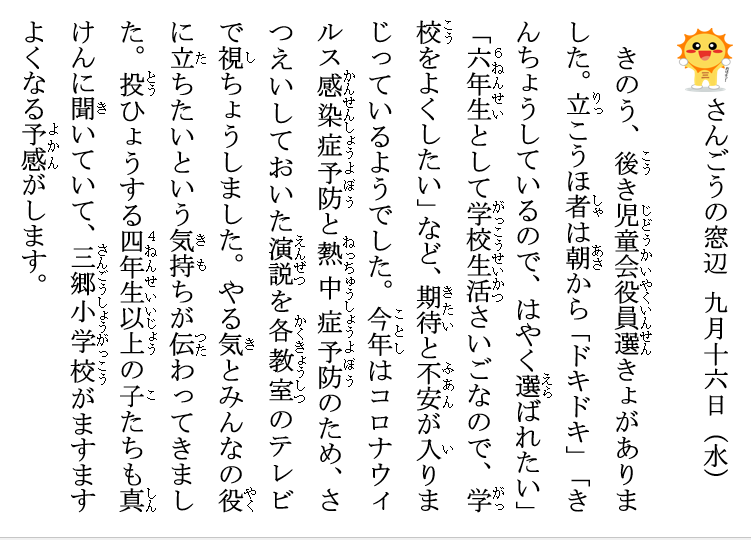 さんごうの窓辺 九月十六日（水）
きのう、後き児童会役員選きょがありま
した。立こうほ者は朝から「ドキドキ」「き
んちょうしているので、はやく選ばれたい」
「六年生として学校生活さいごなので、学
校をよくしたい」など、期待と不安が入りま
じっているようでした。今年はコロナウィ
ルス感染症予防と熱中症予防のため、さ
つえいしておいた演説を各教室のテレビ
で視ちょうしました。やる気とみんなの役
に立ちたいという気持ちが伝わってきまし
た。投ひょうする四年生以上の子たちも真
けんに聞いていて、三郷小学校がますます
よくなる予感がします。